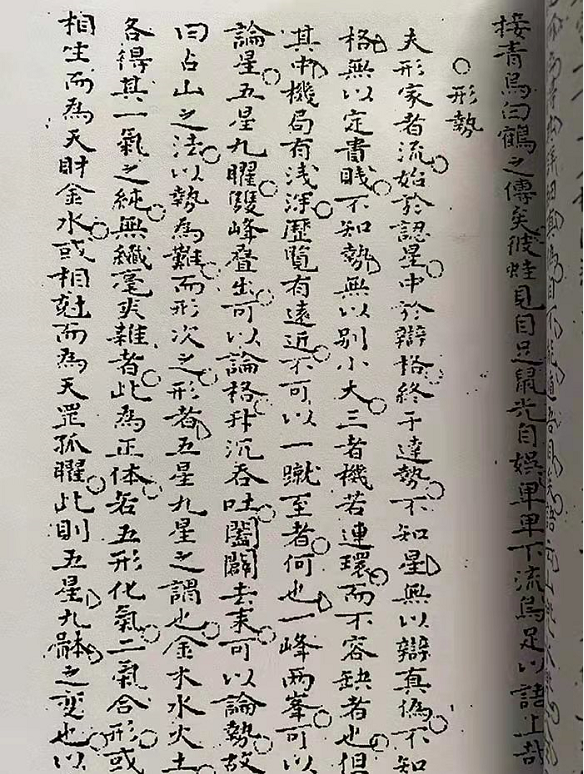 接青烏白鶴之傳矣彼蛙見自足鼠光自娛單單下流烏足以語上哉
形勢
夫形家者流始於認星中於辯格終于達勢不知星無以辯真偽不知
格無以定貴賤不知勢無以別小大三者機若連環而不容缺者也但
其中機局有浅深歷覧有遠近不可以一蹴至者何也一峰兩峯可以
論星五星九曜雙峰疊出可以論格升沉吞吐闔闢去來可以論勢故
曰占山之法以勢為難而形次之形者五星九星之謂也金木水火土
各得其一氣之純無纖毫夾雜者此為正体若五形化氣二氣合形或
相生而為天財金水或相尅而為天罡孤曜此則五星九之变也以